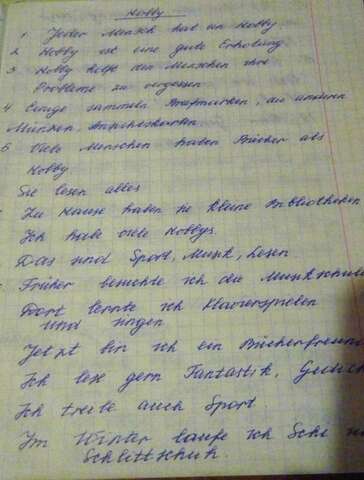 Hobby
1 Jeder Mensch hat ein Hobby
2 Hobby ist eine gute Erholung
3 Hobby helfe den Menschen ihre
Probleme zu vergessen
4 Einige sammeln Briefmarken, die anderen
Münzen, Ansichtskarten.
5 Viele Menschen haben Bücher als
Hobby
Sie lesen alles
Zu Hause haben sie kleine Bibliotheken
Ich habe viele Hobbys.
Das sind Sport, Musik, Lesen.
Früher besuchte ich die Musikschule
Dort lernte ich Klavierspielen
und singen
Jetzt bin ich ein Bücherfreund
Ich lese gern Fantastik,
Ich treibe auch Sport
Im Winter laufe ich Schi
Schlittschuh.